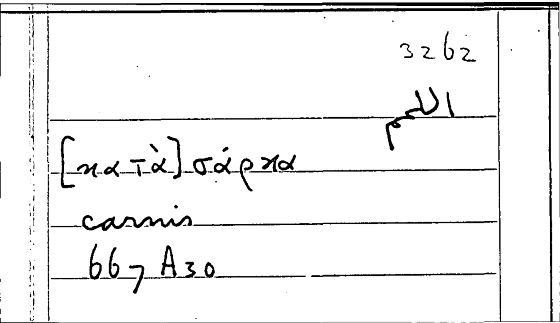 3262
اللحم
[κατὰ] σάρκα
carnis
667 A30